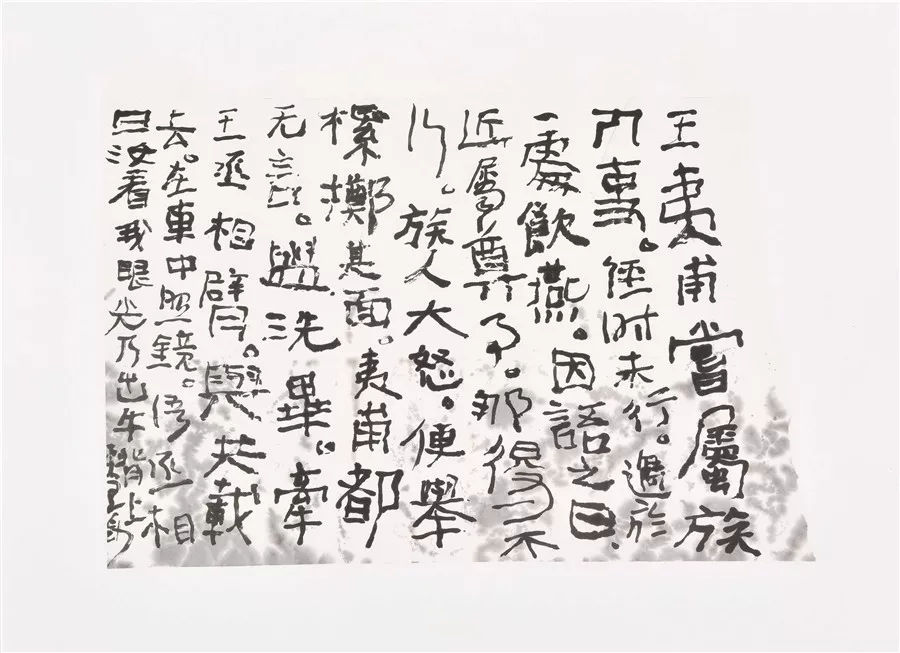 王夷甫嘗屬族
人事。經時未行。遇於
一處飲燕。因語之曰
近屬尊事。那得不
行。族人大怒。便舉
樏擲其面。夷甫都
无言。盥洗畢。牽
王丞相臂。與共載
去。在車中照鏡。語丞相
曰汝看我眼光乃出牛背上